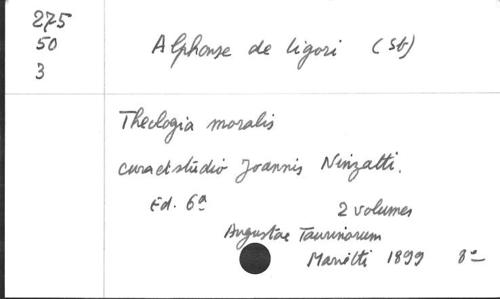 275
50
3
Alphonse de Ligori (St)
Theologia moralis
cura et studio Joannis Ninzatti.
Ed. 6a
2 volumes
Augustae Taurinorum
Marietti 1899 8°